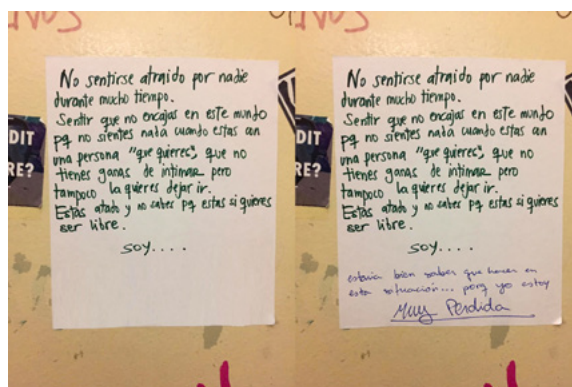 No sentirse atraido por nadie
durante mucho tiempo.
Sentir que no encajas en este mundo
pq no sientes nada cuando estas con
una persona "que quieres", que no
tienes ganas de intimar pero
tampoco la quieres dejar ir.
Estás atado y no sabes pq estas si quieres
ser libre.
SOY....
DIT
RE?
No sentirse atraido por nadie
durante mucho tiempo.
Sentir que no encajas en este mundo
pq no sientes nada cuando estas con
una persona "que quieres", que no
tienes ganas de intimar pero
tampoco la quieres dejar ir.
Estás atado y no sabes pq estas si quieres
ser libre.
SOY....
estaria bien saber que hacer en
esta situación... porq yo estoy
Muy Perdida
DIT
RE?